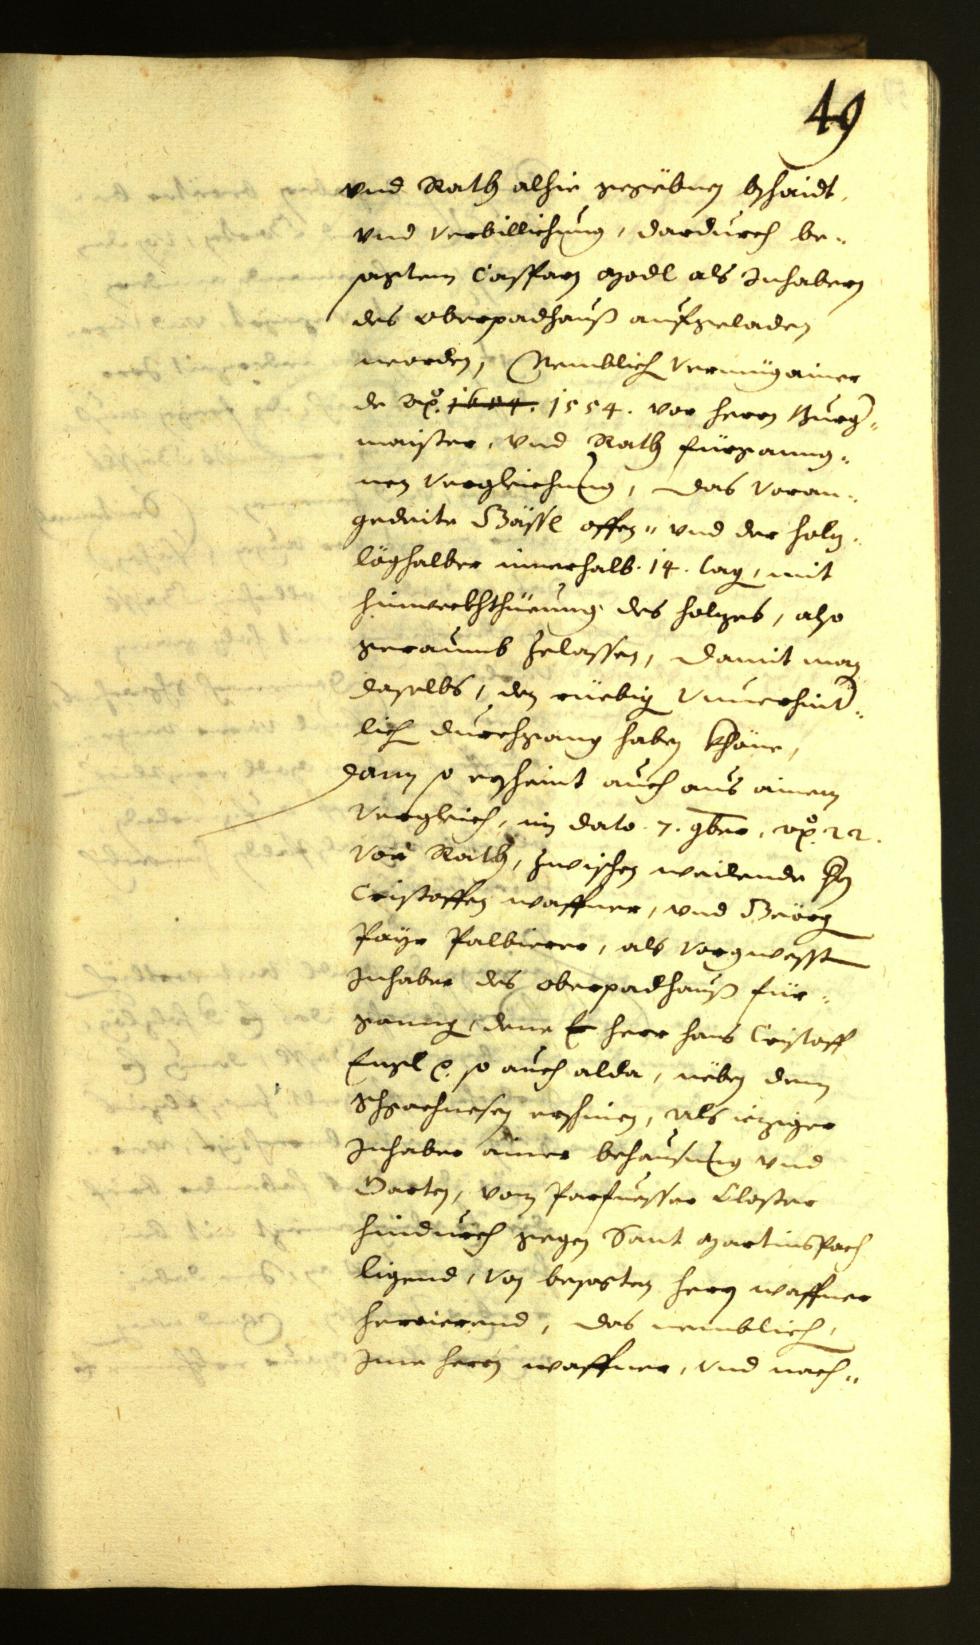 49
vnd Rath alhie gegebnen bschaidt,
vnd Verbillichung, dardurch be¬
sagtem Casparn Modl als Inhabern
des oberpadhauß aufgeladen
worden, Nemblich Vermüg ainer
de ao. 1604. 1554. vor herrn Burg¬
maister, vnd Rath fürgang¬
nen Vergleichung, das Voran¬
gedeite Gässl offen, vnd der holz¬
löghalber innerhalb .14. tag, mit
hinwekhthuenung des holzes, also
geraumb zelassen, damit man
daselbs, den rüebig Vnuerhind¬
lich durchgang haben khöne,
dann so erscheint auch aus ainem
Vergleich, im dato .7. 9ber, ao. 22.
Vor Rath, zwischen weilende hn
Cristoffen waffner, vnd Georg
Payr Palbierer, als Vorgwesst
Inhaber des oberpadhauß für¬
gang, deme herr hans Cristoff
Engl so auch alda, neben dem
Gschwornen erschinen, als ieziger
Inhaber ainer behausung vnd
Garten, vom Parfuesser Closter
hindurch gegen Sant Martins Pach
ligend, Von besagten herrn waffner
herrierend, das nemblich,
Ime herrn waffner, vnd nach¬